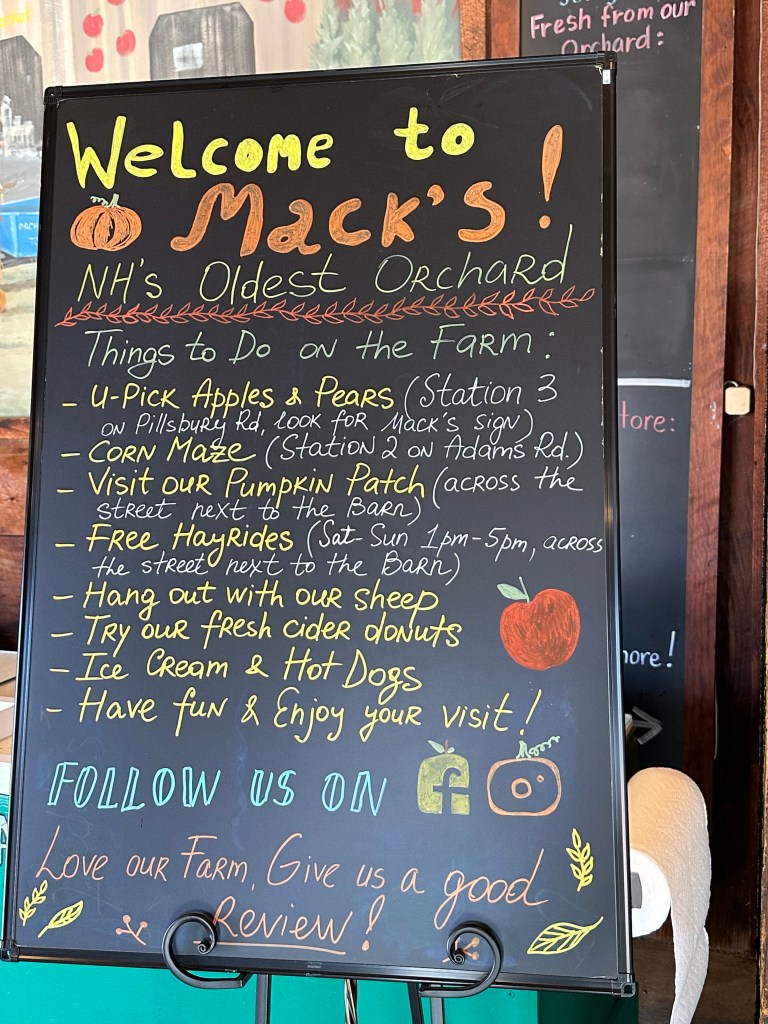 Fresh from our
Orchard:
Welcome to
Mack's!
NH's Oldest Orchard
Things to Do on the Farm:
- U-Pick Apples & Pears (Station 3
on Pillsbury Rd, look for Mack's sign)
- Corn Maze (Station 2 on Adams Rd.)
- Visit our Pumpkin Patch (across the
street next to the Barn)
- Free Hayrides (Sat-Sun 1pm-5pm, across
the street next to the Barn)
- Hang out with our sheep
- Try our fresh cider donuts
- Ice Cream & Hot Dogs
- Have fun & Enjoy your visit!
Follow us on f
Love our Farm, Give us a good
Review!
tore:
more!